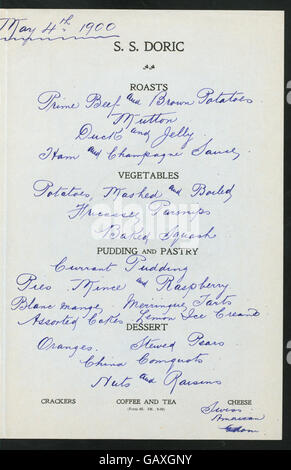 May 4th 1900
S. S. DORIC
ROASTS
Prime Beef and Brown Potatoes
Mutton
Duck and Jelly
Ham and Champagne Sauce
VEGETABLES
Potatoes, Mashed and Boiled
Fricasse Parsnips
Baked Squash
PUDDING AND PASTRY
Currant Pudding
Pies Mince and Raspberry
Blanc mange Merringue Tarts
Assorted Cakes Lemon Ice Cream
DESSERT
Oranges. Stewed Pears
China Comquots
Nuts and Raisins
CRACKERS COFFEE AND TEA CHEESE
Swiss
American
Edam
alamy stock photo